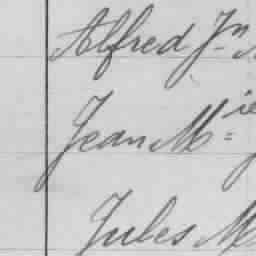 Alfred Jn
Jean M=ie
Jules M